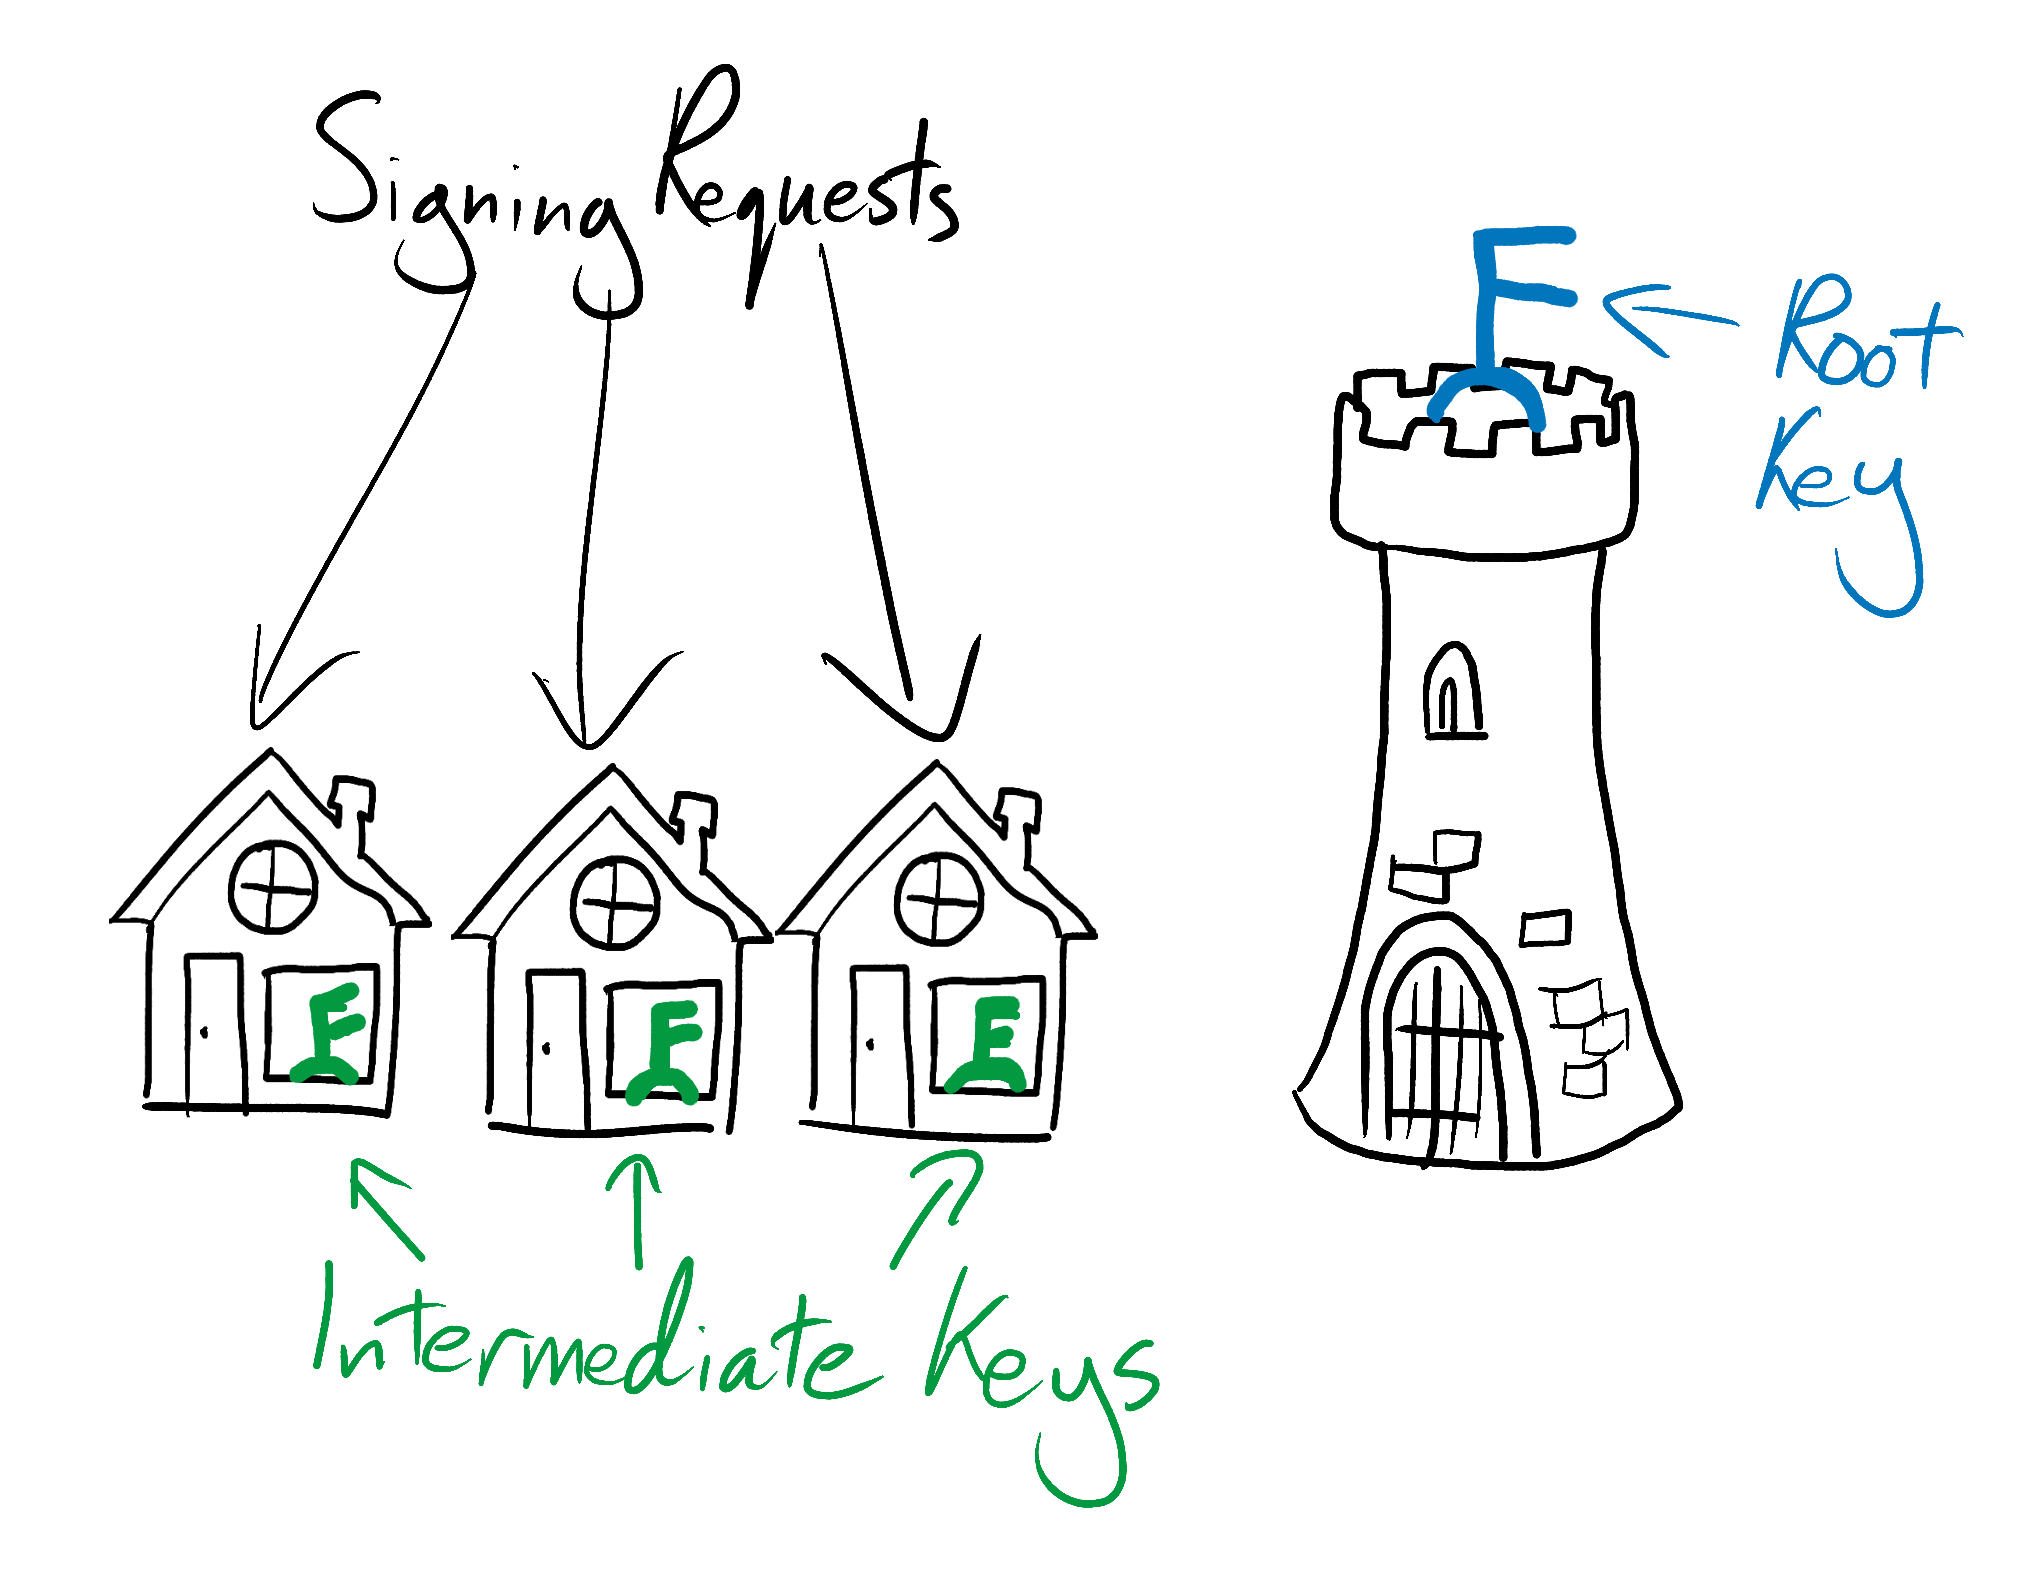 Signing Requests
Root
Key
Intermediate Keys